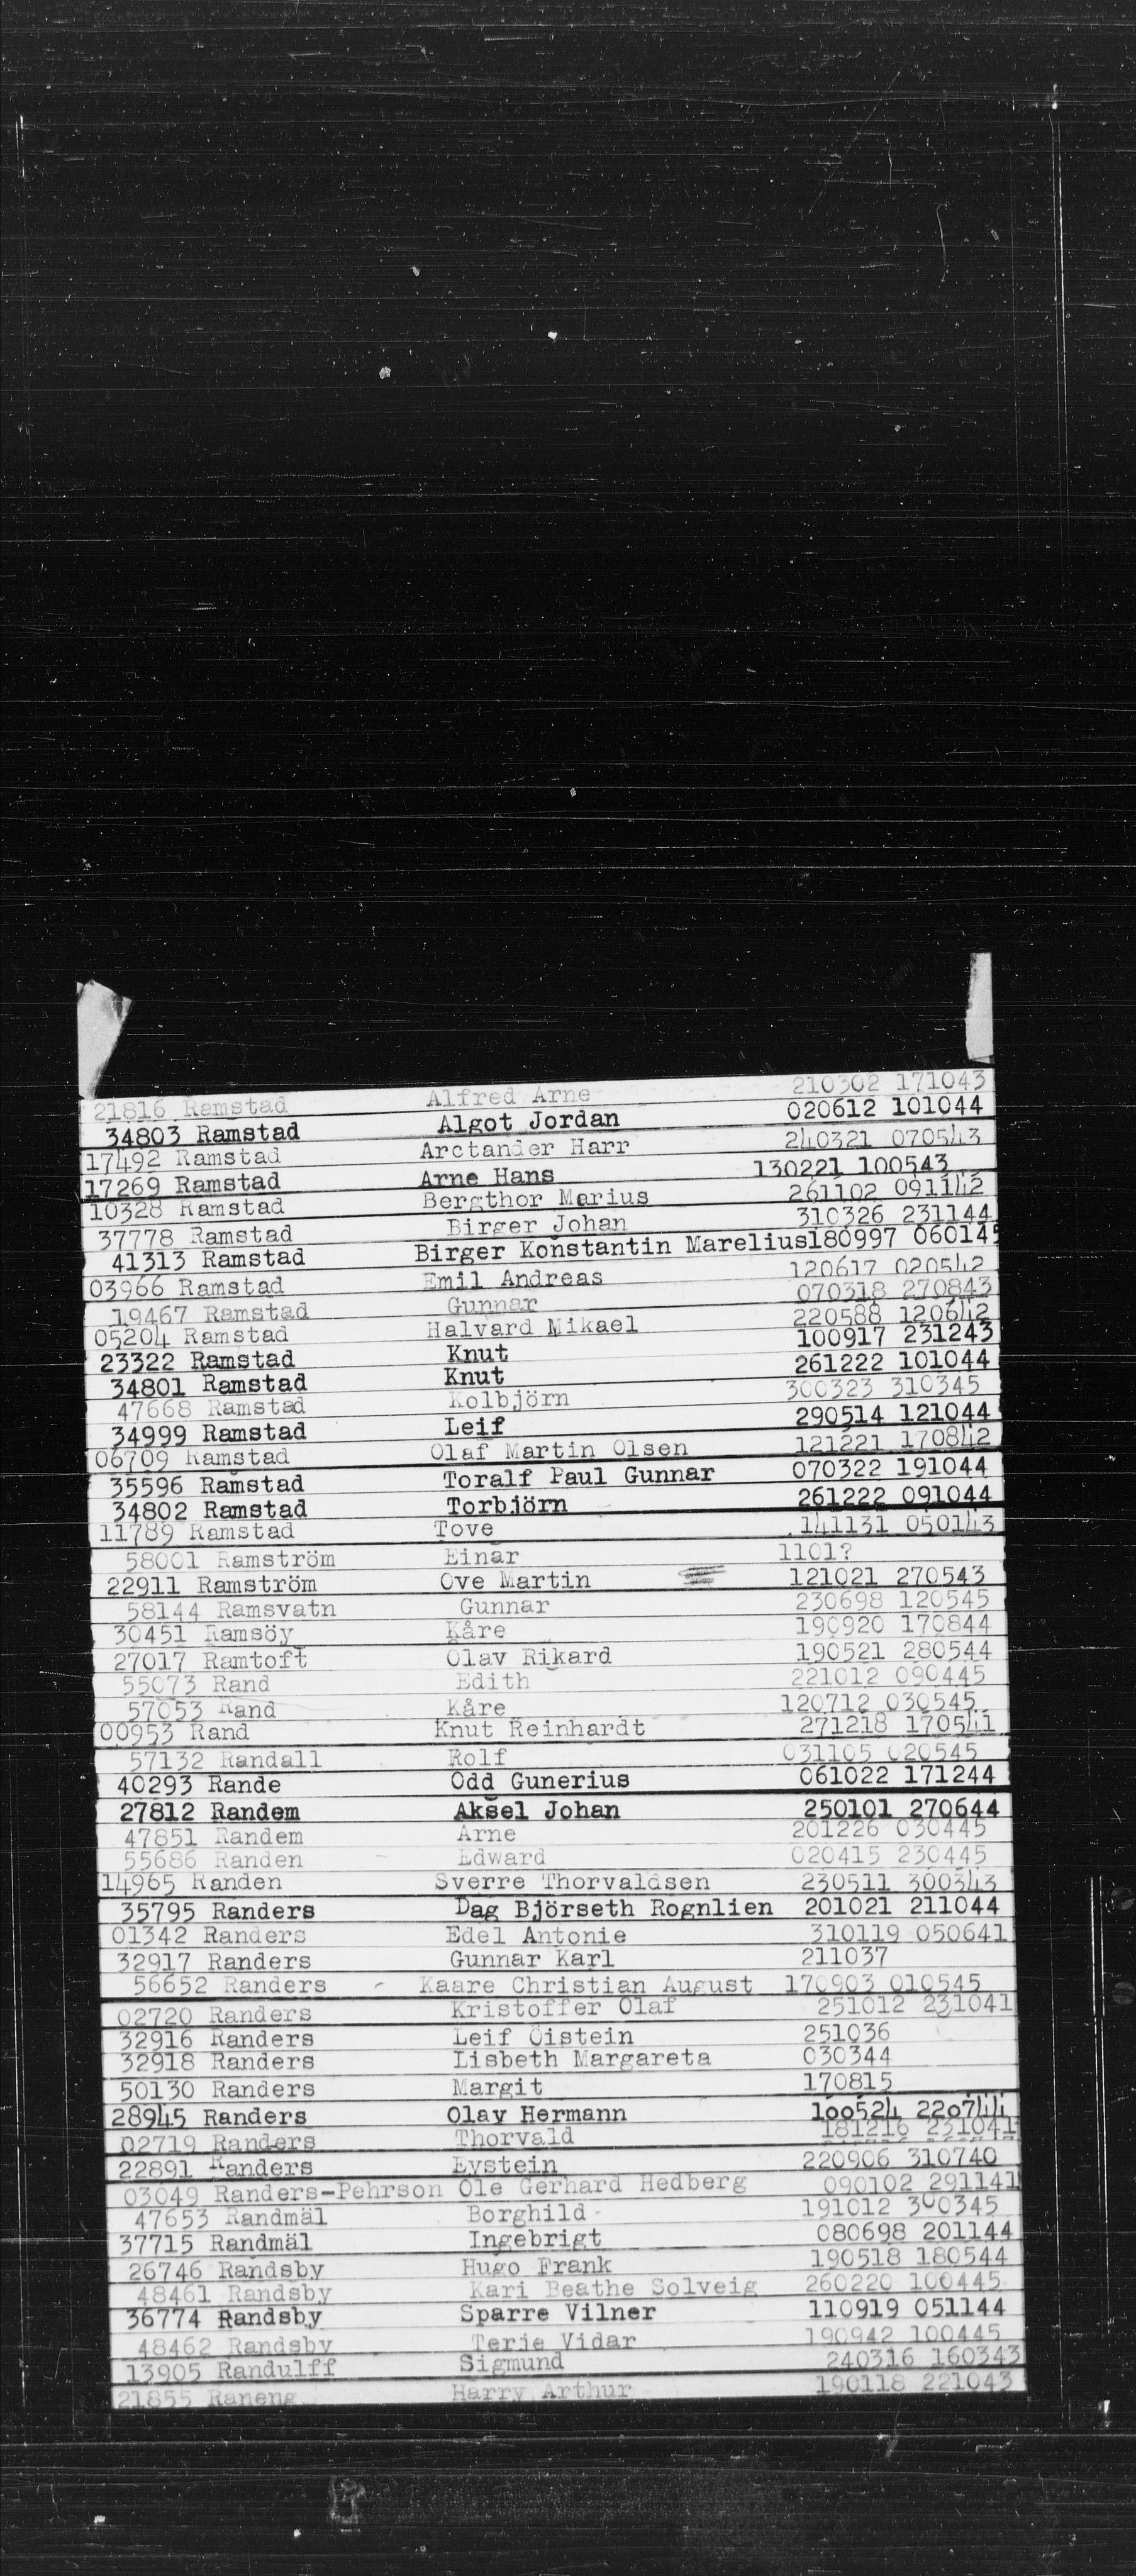 21816 Ramstad Alfred Arne 210302 171043
34803 Ramstad Algot Jordan 020612 101044
17492 Ramstad Arctander Harr 240321 070543
17269 Ramstad Arne Hans 130221 100543
10328 Ramstad Bergthor Marius 261102 091142
37778 Ramstad Birger Johan 310326 231144
41313 Ramstad Birger Konstantin Marelius180997 060145
03966 Ramstad Emil Andreas 120617 020542
19467 Ramstad Gunnar 070318 270843
05204 Ramstad Halvard Mikael 220588 120642
23322 Ramstad Knut 100917 231243
34801 Ramstad Knut 261222 101044
47668 Ramstad Kolbjörn 300323 310345
34999 Ramstad Leif 290514 121044
06709 Ramstad Olaf Martin Olsen 121221 170842
35596 Ramstad Toralf Paul Gunnar 070322 191044
34802 Ramstad Torbjörn 261222 091044
11789 Ramstad Tove 141131 050143
58001 Ramström Einar 1101?
22911 Ramström Ove Martin 121021 270543
58144 Ramsvatn Gunnar 230698 120545
30451 Ramsöy Kåre 190920 170844
27017 Ramtoft Olav Rikard 190521 280544
55073 Rand Edith 221012 090445
57053 Rand Kåre 120712 030545
00953 Rand Knut Reinhardt 271218 170541
57132 Randall Rolf 031105 020545
40293 Rande Odd Gunerius 061022 171244
27812 Randem Aksel Johan 250101 270644
47851 Randem Arne 201226 030445
55686 Randen Edward 020415 230445
14965 Randen Sverre Thorvaldsen 230511 300343
35795 Randers Dag Björseth Rognlien 201021 211044
01342 Randers Edel Antonie 310119 050641
32917 Randers Gunnar Karl 211037
56652 Randers Kaare Christian August 170903 010545
02720 Randers Kristoffer Olaf 251012 231041
32916 Randers Leif Öistein 251036
32918 Randers Lisbeth Margareta 030344
50130 Randers Margit 170815
28945 Randers Olav Hermann 100524 220744
02719 Randers Thorvald 181216 231041
22891 Randers Eystein 220906 310740
03049 Randers-Pehrson Ole Gerhard Hedberg 090102 291141
47653 Randmäl Borghild 191012 300345
37715 Randmäl Ingebrigt 080698 201144
26746 Randsby Hugo Frank 190518 180544
48461 Randsby Kari Beathe Solveig 260220 100445
36774 Randsby Sparre Vilner 110919 051144
48462 Randsby Terje Vidar 190942 100445
13905 Randulff Sigmund 240316 160343
21855 Raneng Harry Arthur 190118 221043